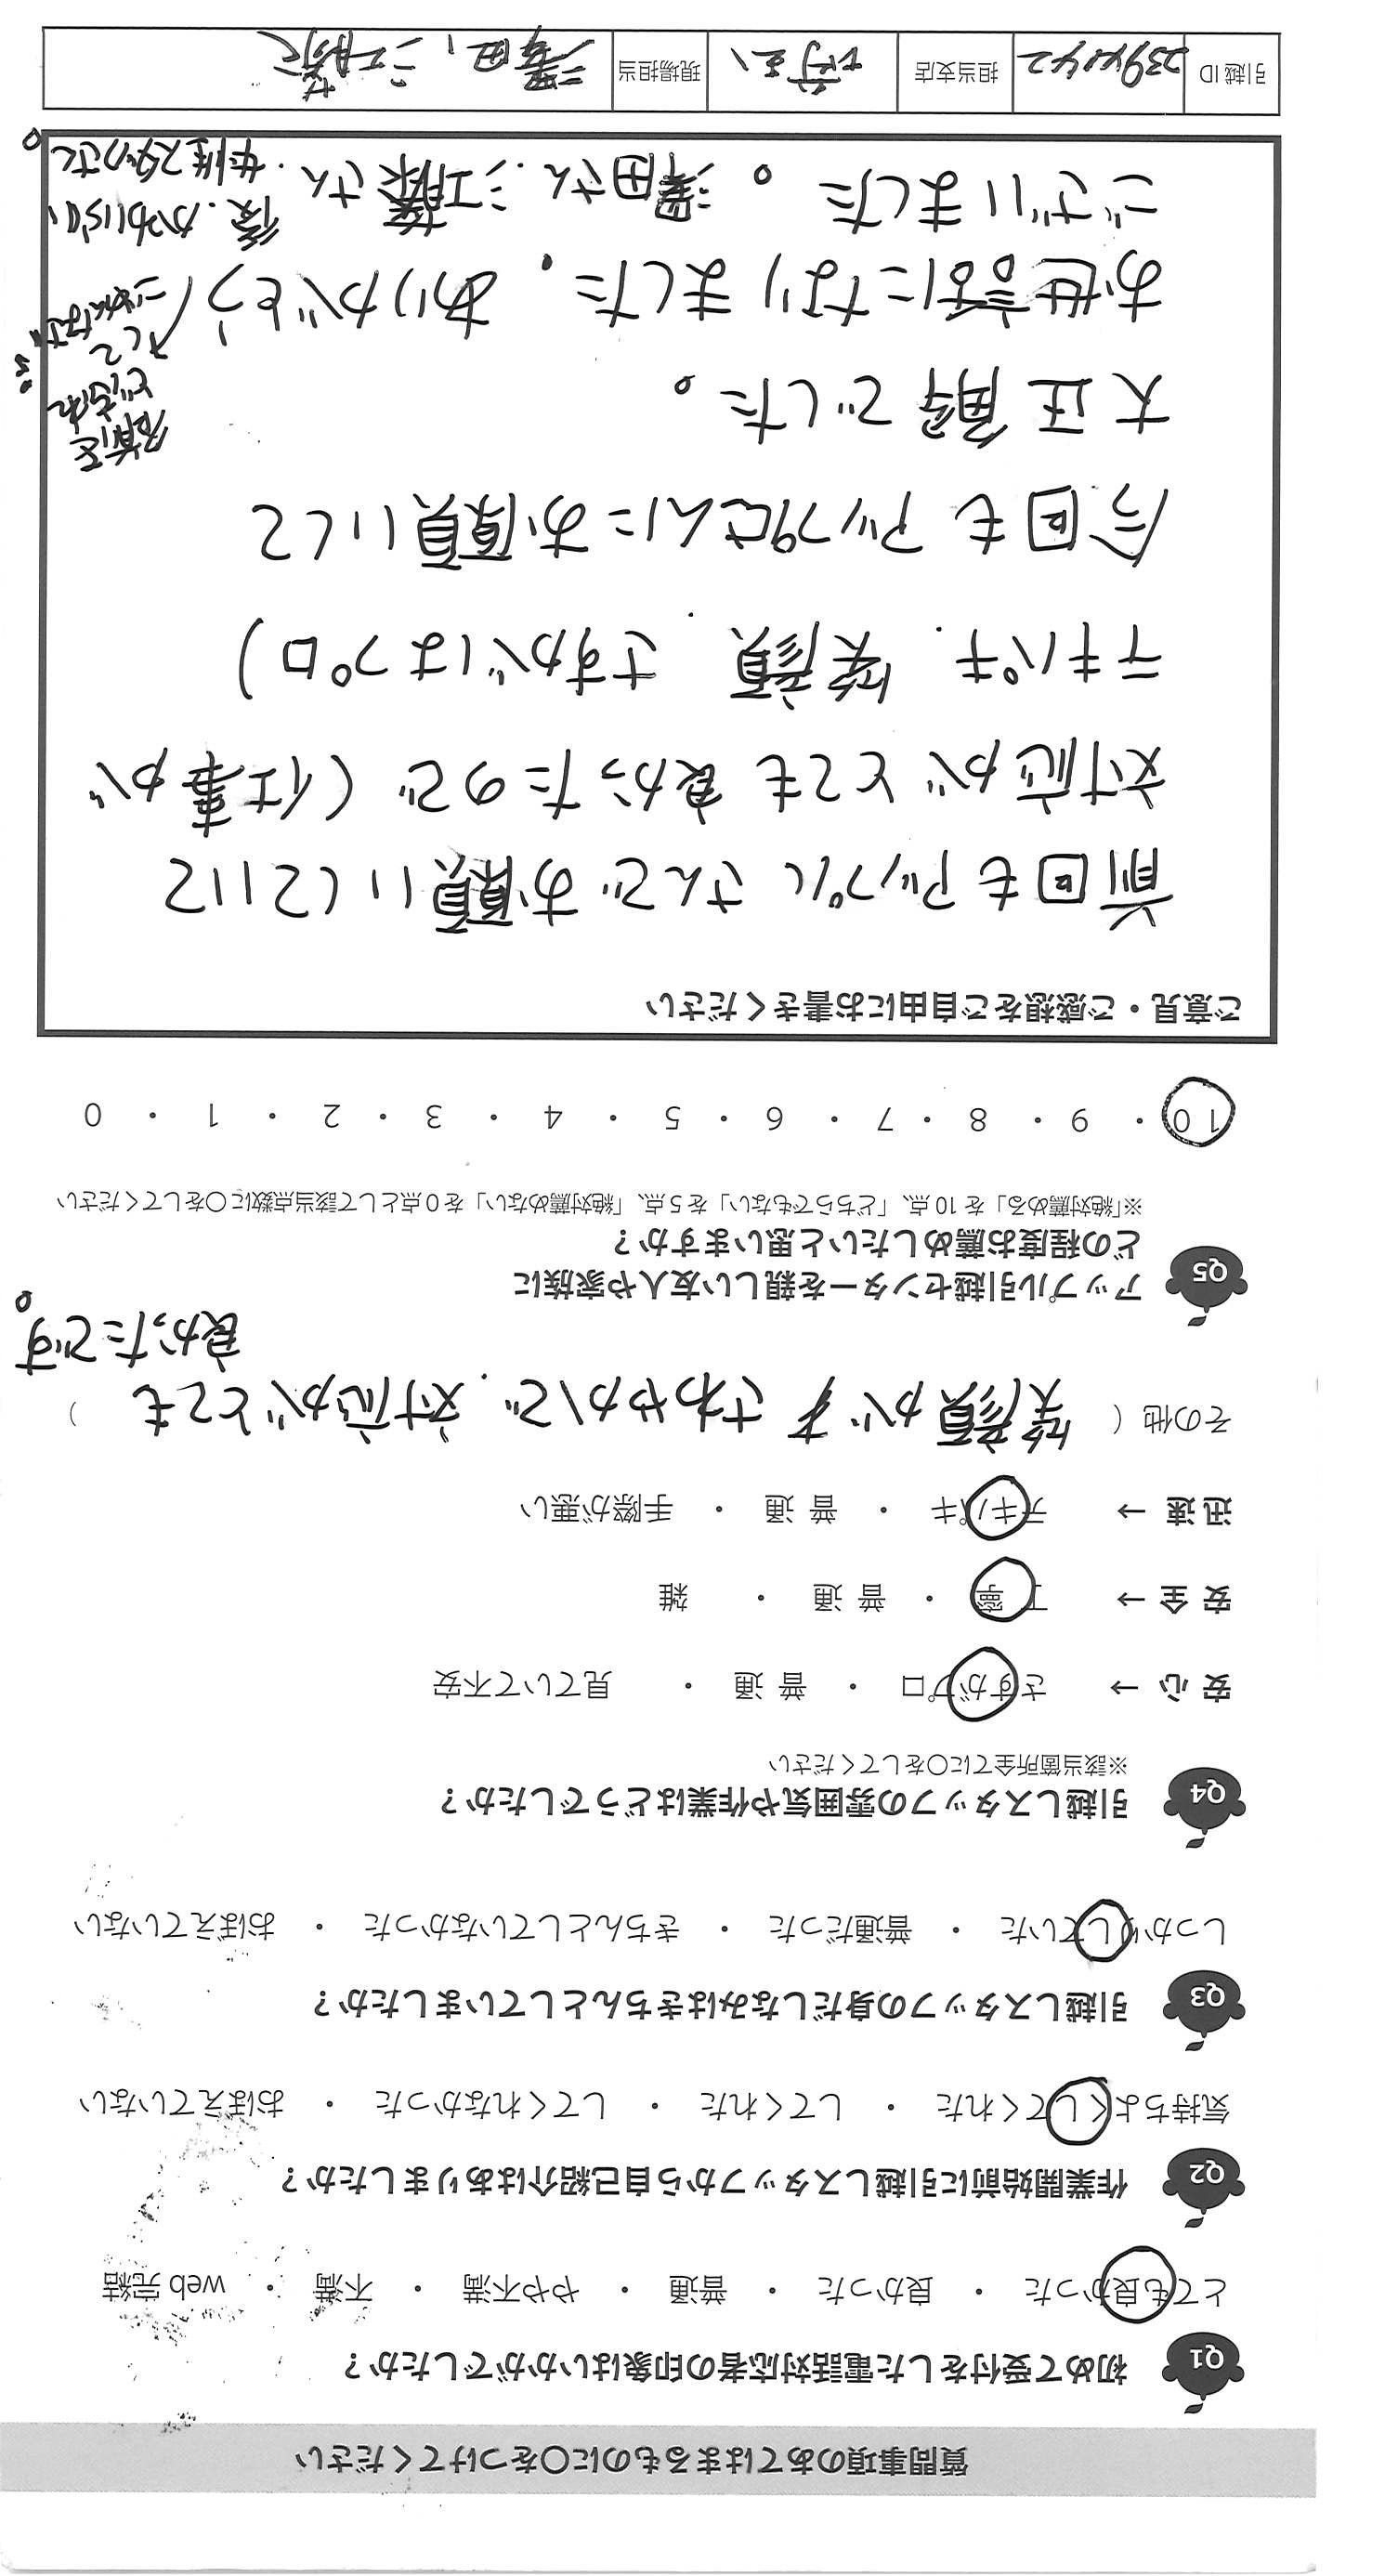 質問事項のあてはまるものに〇をつけてください
Q1 初めて受付をした電話対応者の印象はいかがでしたか？
とても良かった ・ 良かった ・ 普通 ・ やや不満 ・ 不満 ・ web 完結
Q2 作業開始前に引越しスタッフから自己紹介はありましたか？
気持ちよくしてくれた ・ してくれた ・ してくれなかった ・ おぼえていない
Q3 引越しスタッフの身だしなみはきちんとしていましたか？
しっかりしていた ・ 普通だった ・ きちんとしていなかった ・ おぼえていない
Q4 引越しスタッフの雰囲気や作業はどうでしたか？
※該当箇所全てに〇をしてください
安心 → さすがプロ ・ 普通 ・ 見ていて不安
安全 → 丁寧 ・ 普通 ・ 雑
迅速 → テキパキ ・ 普通 ・ 手際が悪い
その他 ( 笑顔が さわやかで、対応がとても )
良かったです。
Q5 アップル引越センターを親しい友人や家族に
どの程度お薦めしたいと思いますか？
※「絶対薦める」を 10 点、「どちらでもない」を 5 点、「絶対薦めない」を 0 点として該当点数に〇をしてください
10 ・ 9 ・ 8 ・ 7 ・ 6 ・ 5 ・ 4 ・ 3 ・ 2 ・ 1 ・ 0
ご意見・ご感想をご自由にお書きください
前回もアップルさんでお願いしていて
対応がとても良かったので (仕事が
テキパキ、笑顔、さすがはプロ)
今回もアップルさんにお願いして
大正解でした。
お世話になりました。ありがとう
ございました。澤田さん、江藤さん、女性スタッフさん
後、かわいらしい
引越 ID 担当支店 現場担当 澤田、江藤